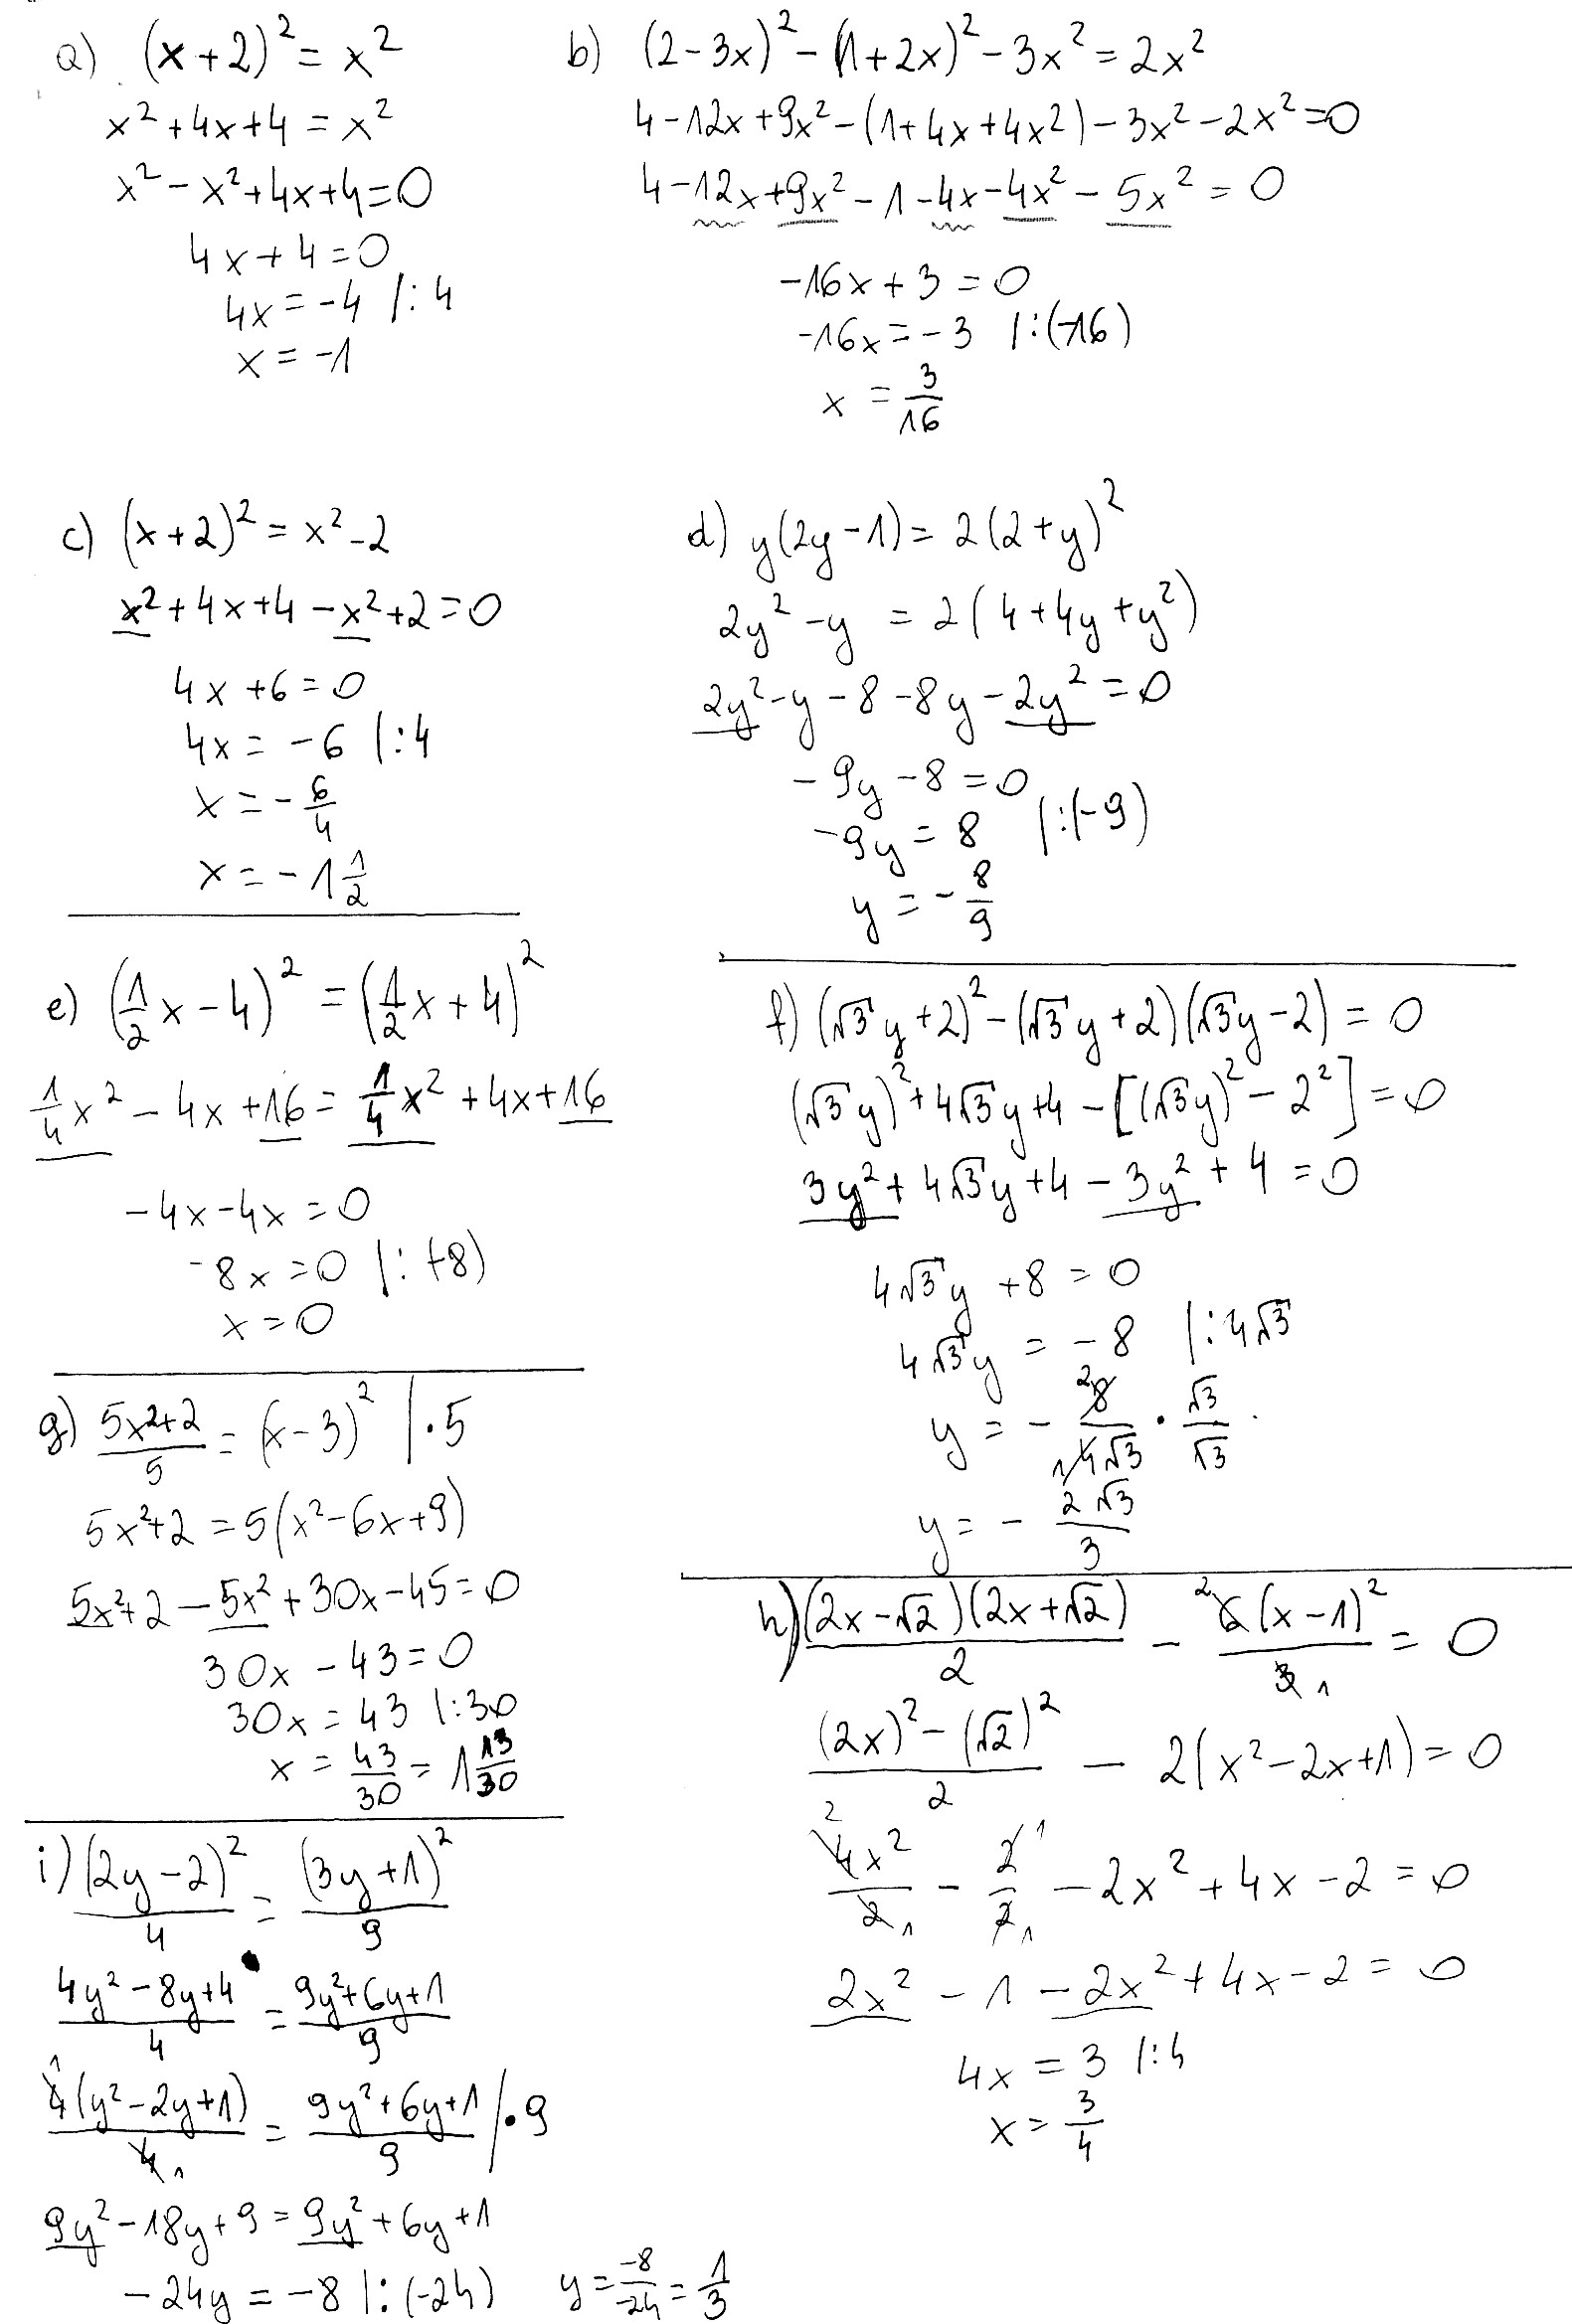 a) (x+2)² = x²
x²+4x+4 = x²
x²-x²+4x+4=0
4x+4=0
4x=-4 /:4
x=-1
b) (2-3x)²-(1+2x)²-3x²=2x²
4-12x+9x²-(1+4x+4x²)-3x²-2x²=0
4-12x+9x²-1-4x-4x²-5x²=0
-16x+3=0
-16x=-3 /:(-16)
x = 3/16
c) (x+2)²=x²-2
x²+4x+4-x²+2=0
4x+6=0
4x=-6 /:4
x=-6/4
x=-1 1/2
d) y(2y-1)=2(2+y)²
2y²-y = 2(4+4y+y²)
2y²-y-8-8y-2y²=0
-9y-8=0
-9y=8 /:(-9)
y=-8/9
e) (1/2x-4)²=(1/2x+4)²
1/4x²-4x+16=1/4x²+4x+16
-4x-4x=0
-8x=0 /:(-8)
x=0
f) (√3y+2)²-(√3y+2)(√3y-2)=0
(√3y)²+4√3y+4-[(√3y)²-2²]=0
3y²+4√3y+4-3y²+4=0
4√3y+8=0
4√3y=-8 /:4√3
y=- 2 8/1 4√3 · √3/√3
y=- 2√3/3
g) 5x²+2/5=(x-3)² /·5
5x²+2=5(x²-6x+9)
5x²+2-5x²+30x-45=0
30x-43=0
30x=43 /:30
x=43/30=1 13/30
h) (2x-√2)(2x+√2)/2 - 2 6(x-1)²/3 1 = 0
(2x)²-(√2)²/2 - 2(x²-2x+1)=0
2 4x²/2 1 - 2 1/2 1 -2x²+4x-2=0
2x²-1-2x²+4x-2=0
4x=3 /:4
x=3/4
i) (2y-2)²/4=(3y+1)²/9
4y²-8y+4/4=9y²+6y+1/9
1 4(y²-2y+1)/4 1=9y²+6y+1/9 /·9
9y²-18y+9=9y²+6y+1
-24y=-8 /:(-24) y=-8/-24=1/3